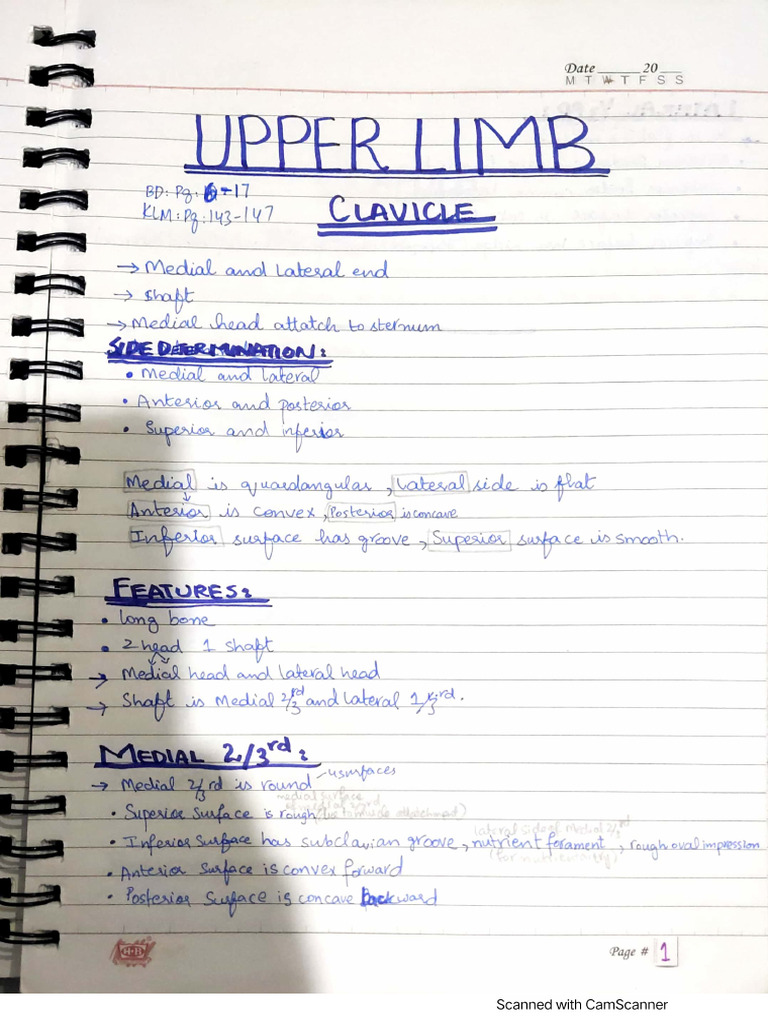 Date 20
M T W T F S S
UPPER LIMB
BD: Pg: 6-17
KLM: Pg: 143-147
CLAVICLE
→ Medial and Lateral end
→ Shaft
→ Medial head attatch to sternum
SIDE DETERMINATION:
• Medial and lateral
• Anterior and posterior
• Superior and inferior
Medial is quardangular, Lateral side is flat
Anterior is convex, Posterior is concave
Inferior surface has groove, Superior surface is smooth.
FEATURES:
• long bone
• 2 head 1 shaft
→ Medial head and lateral head
→ Shaft is Medial 2/3rd and lateral 1/3rd.
MEDIAL 2/3rd:
→ Medial 2/3rd is round - 4 surfaces
medial surface
of medial 2/3rd
• Superior Surface is rough (due to muscle attachment)
lateral side of Medial 2/3rd
• Inferior Surface has subclavian groove, nutrient forament, rough oval impression
• Anterior Surface is convex forward
• Posterior Surface is concave backward
H·B
Page # 1
Scanned with CamScanner